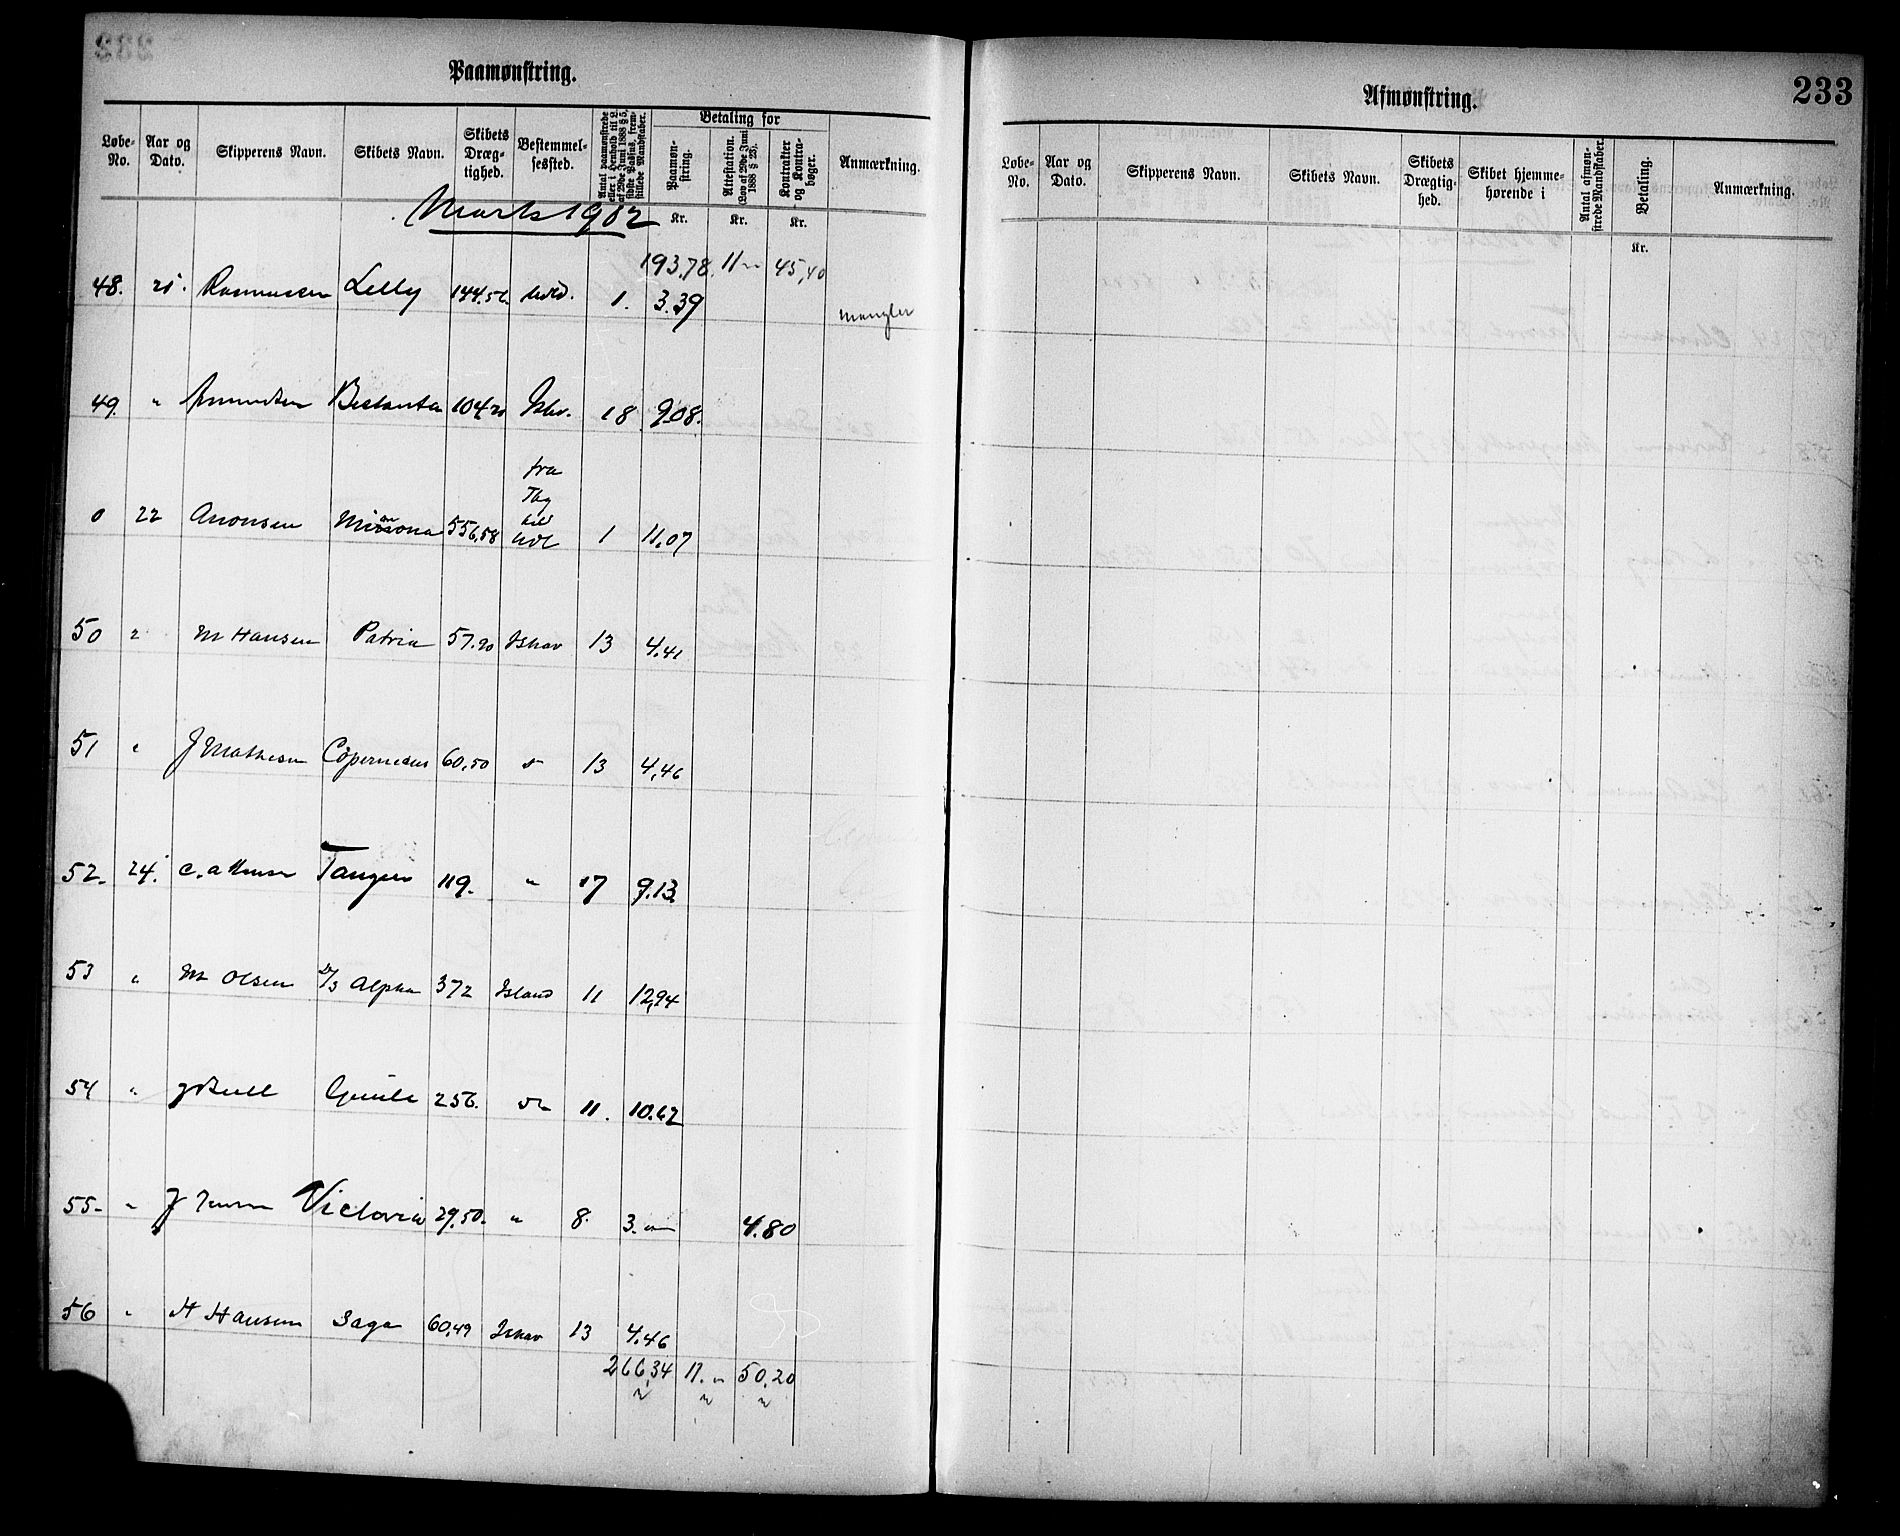 Paamønstring.
Løbe-No. Aar og Dato. Skipperens Navn. Skibets Navn. Skibets Dræg-tighed. Bestemmel-sessted. Antal paamønstrede eller i Henhold til L. af 29de Juni 1888 § 5, sidste Passus, frem-stillede Mandskaber. Betaling for Paamøn-string. Attestation. (Lov af 29de Juni 1888 § 23). Kontrakter og Kontra-bøger. Anmærkning.
Marts 1902 Kr. Kr. Kr.
193,78. 11 " 45,40
48. 21. Rasmussen Lelly 144.56 1. 3.39 mangler
49. " Amundsen 104.20 Ishv. 18 9.08.
fra
Tbg
til
0 22 Aronsen 556,58 1 11,07
50 " M Hansen Patria 57.20 Ishav 13 4.41
51 " J Mathesen Copernicus 60,50 " 13 4,46
52. 24. 119. " 17 9.13
53 " M Olsen D/S Alpha 372 Island 11 12,94
54 " 256. 11. 10.62
55 " J Jensen Victoria 29,50. " 8. 3. " 4.80
56 " H Hansen Saga 60,49 Ishav 13 4.46
266,34 11. " 50,20
Afmønstring.
233
Løbe-No. Aar og Dato. Skipperens Navn. Skibets Navn. Skibets Drægtig-hed. Skibet hjemme-hørende i Antal afmøn-strede Mandskaber. Betaling. Anmærkning.
Kr.